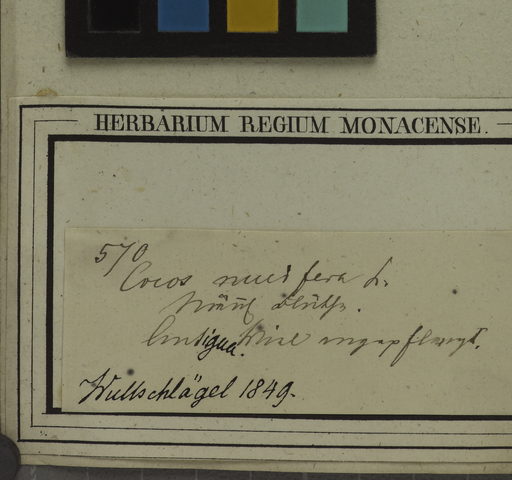 HERBARIUM REGIUM MONACENSE.
570
Cocos nucifera L.
Blüthe.
Antigua. angepflanzt.
Wullschlägel 1849.